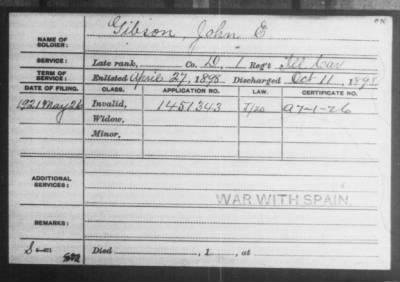 Gibson, John E.
NAME OF SOLDIER:
SERVICE: Late rank, Co. D, 1 Reg't Ill Cav
TERM OF SERVICE: Enlisted April 27, 1898 Discharged Oct 11, 1898
DATE OF FILING. CLASS. APPLICATION NO. LAW. CERTIFICATE NO.
1921 May 26 Invalid, 1451343 A7-1-26
Widow,
Minor,
ADDITIONAL SERVICES:
WAR WITH SPAIN.
REMARKS:
Died , 1 , at